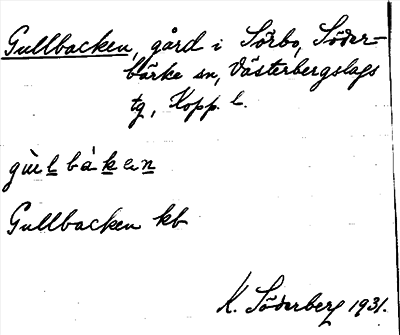 Gullbacken, gård i Sörbo, Söder-
bärke sn, Västerbergslags
tg, Kopp. l.
gùlbákɛn
Gullbacken kb
K. Söderberg 1931.